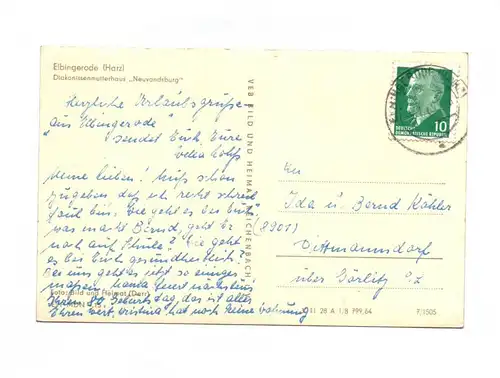 Elbingerode (Harz)
Diakonissenmutterhaus „Neuvandsburg"
Herzliche Urlaubsgrüße
aus Elbingerode
sendet Euch, Eure
Meine lieben! Muß schon
zugeben daß ich recht schreib
faul bin. Wie geht es bei Euch,
was macht Bernd, geht Er
noch auf Schule? Wie geht
es bei Euch gesundheitlich?
Bei uns geht es jetzt so einiger
maßen, feiert nächstens
Ihren 80. Geburtstag, das ist alles
Ehren wert, hat noch keine Wohnung
Foto: Bild und Heimat (Darr)
VEB BILD UND HEIMAT REICHENBACH
DEUTSCHE
DEMOKRATISCHE REPUBLIK
10
An
Ida u. Bernd Köhler
(8901)
Dittmannsdorf
über Görlitz o/L
III 28 A 1/B 799/64
F 1505